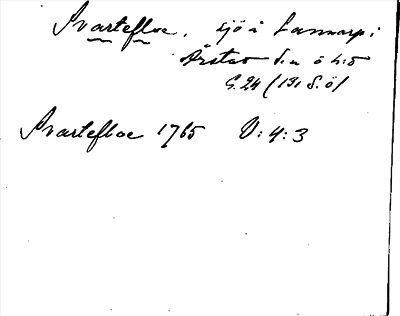 Svartefloe. sjö å Lannarp i
Årstad s.n ö 4:5
G. 24 (131 S.ö)
Svartefloe 1765 V: 4: 3